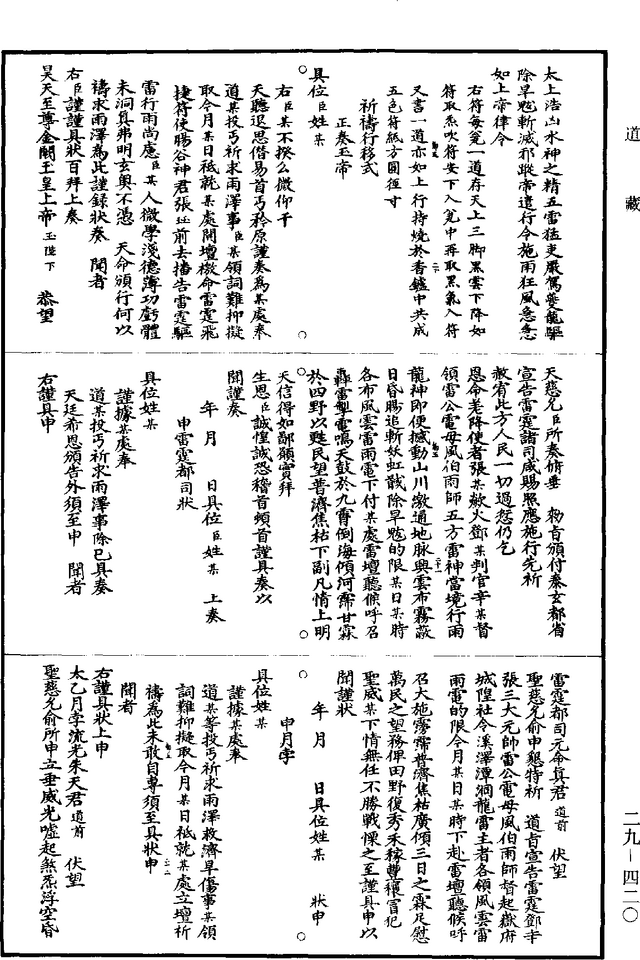 道藏
太上浩凶水神之精五雷猛吏嚴駕夔龍驅
除旱魃斬滅邪蹤帝遣行令施雨狂風急急
如上帝律令
右符每瓮一道存天上三腳黑雲下降如
符取炁吹符安下入瓮中再取黑氣入符
又書一道亦如上行持燒於香鑪中共成
五色符紙方圓徑寸
祈禱行移式
正奏玉帝
具位臣姓某
右臣某不揆么微仰干
天聽退思僭易首丐矜原謹奏為某處奉
道某投丐祈求雨澤事臣某領詞難抑擬
取今月某日祗就某處開壇檄命雷霆飛
捷符使腸谷神君張珏前去播告雷霆驅
雷行雨尚慮臣某人微學淺德薄功虧體
未洞真弗明玄奧不憑 天命頒行何以
禱求雨澤為此謹錄狀奏 聞者
右臣謹謹具狀百拜上奏
昊天至尊金闕玉皇上帝玉陛下 恭望
天慈允臣所奏俯垂 勑旨頒付泰玄都省
宣告雷霆諸司咸賜照應施行先祈
赦宥此方人民一切過愆仍乞
恩命差降使者張某歘火鄧某判官辛某督
領雷公電母風伯雨師五方雷神當境行雨
龍神即便撼動山川激通地脉興雲布霧蔽
日昏腸追斬妖虹戮除旱魃的限某日某時
各布風雲雷雨電下付某處雷壇聽候呼召
轟雷掣電鳴天鼓於九霄倒海傾河霈甘霖
於四野以甦民望普濟焦枯下副凡情上明
天信得如鄙願實拜
生恩臣誠惶誠恐稽首頓首謹具奏以
聞謹奏
年 月 日具位臣姓某 上奏
申雷霆都司狀
具位姓某
謹據某處奉
道某投丐祈求雨澤事除已具奏
天廷希恩頒告外須至申 聞者
右謹具申
雷霆都司元命真君道前 伏望
聖慈允俞申懇特祈 道旨宣告雷霆鄧辛
張三大元帥雷公電母風伯雨師督起嶽府
城隍社令溪澤潭洞龍雷主者各領風雲雷
雨雷的限今月某日某時下赴雷壇聽候呼
召大施霶霈普濟焦枯廣傾三日之霖足慰
萬民之望務俾田野復秀禾稼豐穰冒犯
聖威某下情無任不勝戰慄之至謹具申以
聞謹狀
年 月 日具位姓某 狀申
申月孛
具位姓某
謹據某處奉
道某等投丐祈求雨澤救濟旱傷事某領
詞難抑擬取今月某日祗就某處立壇祈
禱為此未敢自專須至具狀申
聞者
右謹具狀上申
太乙月孛流光朱天君道前 伏望
聖慈允俞所申立垂威光噓起煞炁浮空昏
二九—四二〇